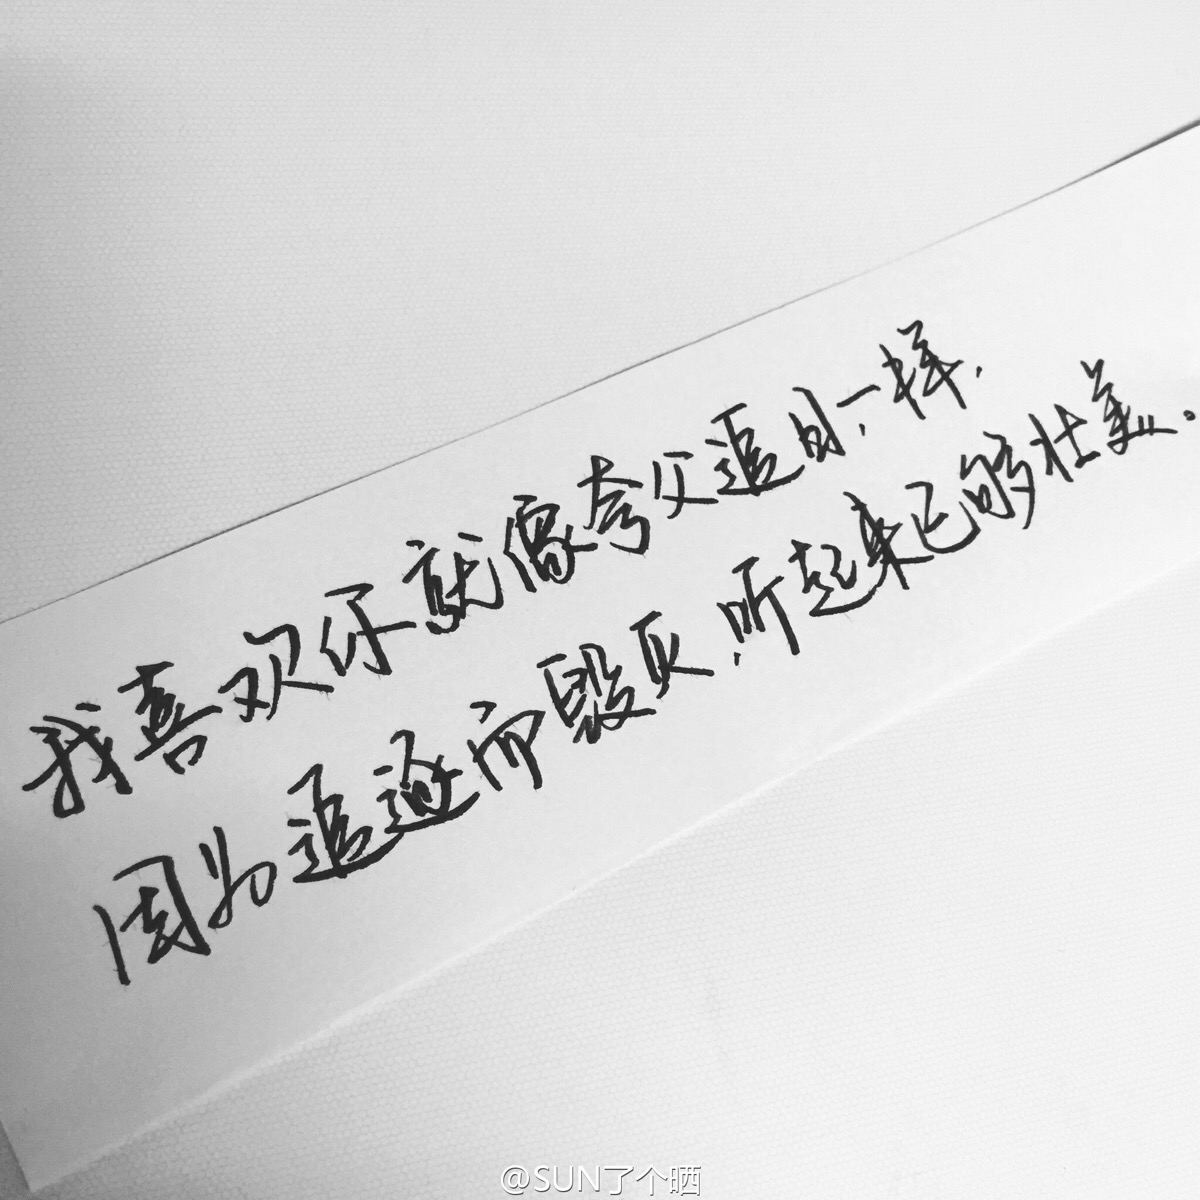 我喜欢你就像夸父追日一样，
因为追逐而毁灭，听起来已够壮美。
@SUN了个晒